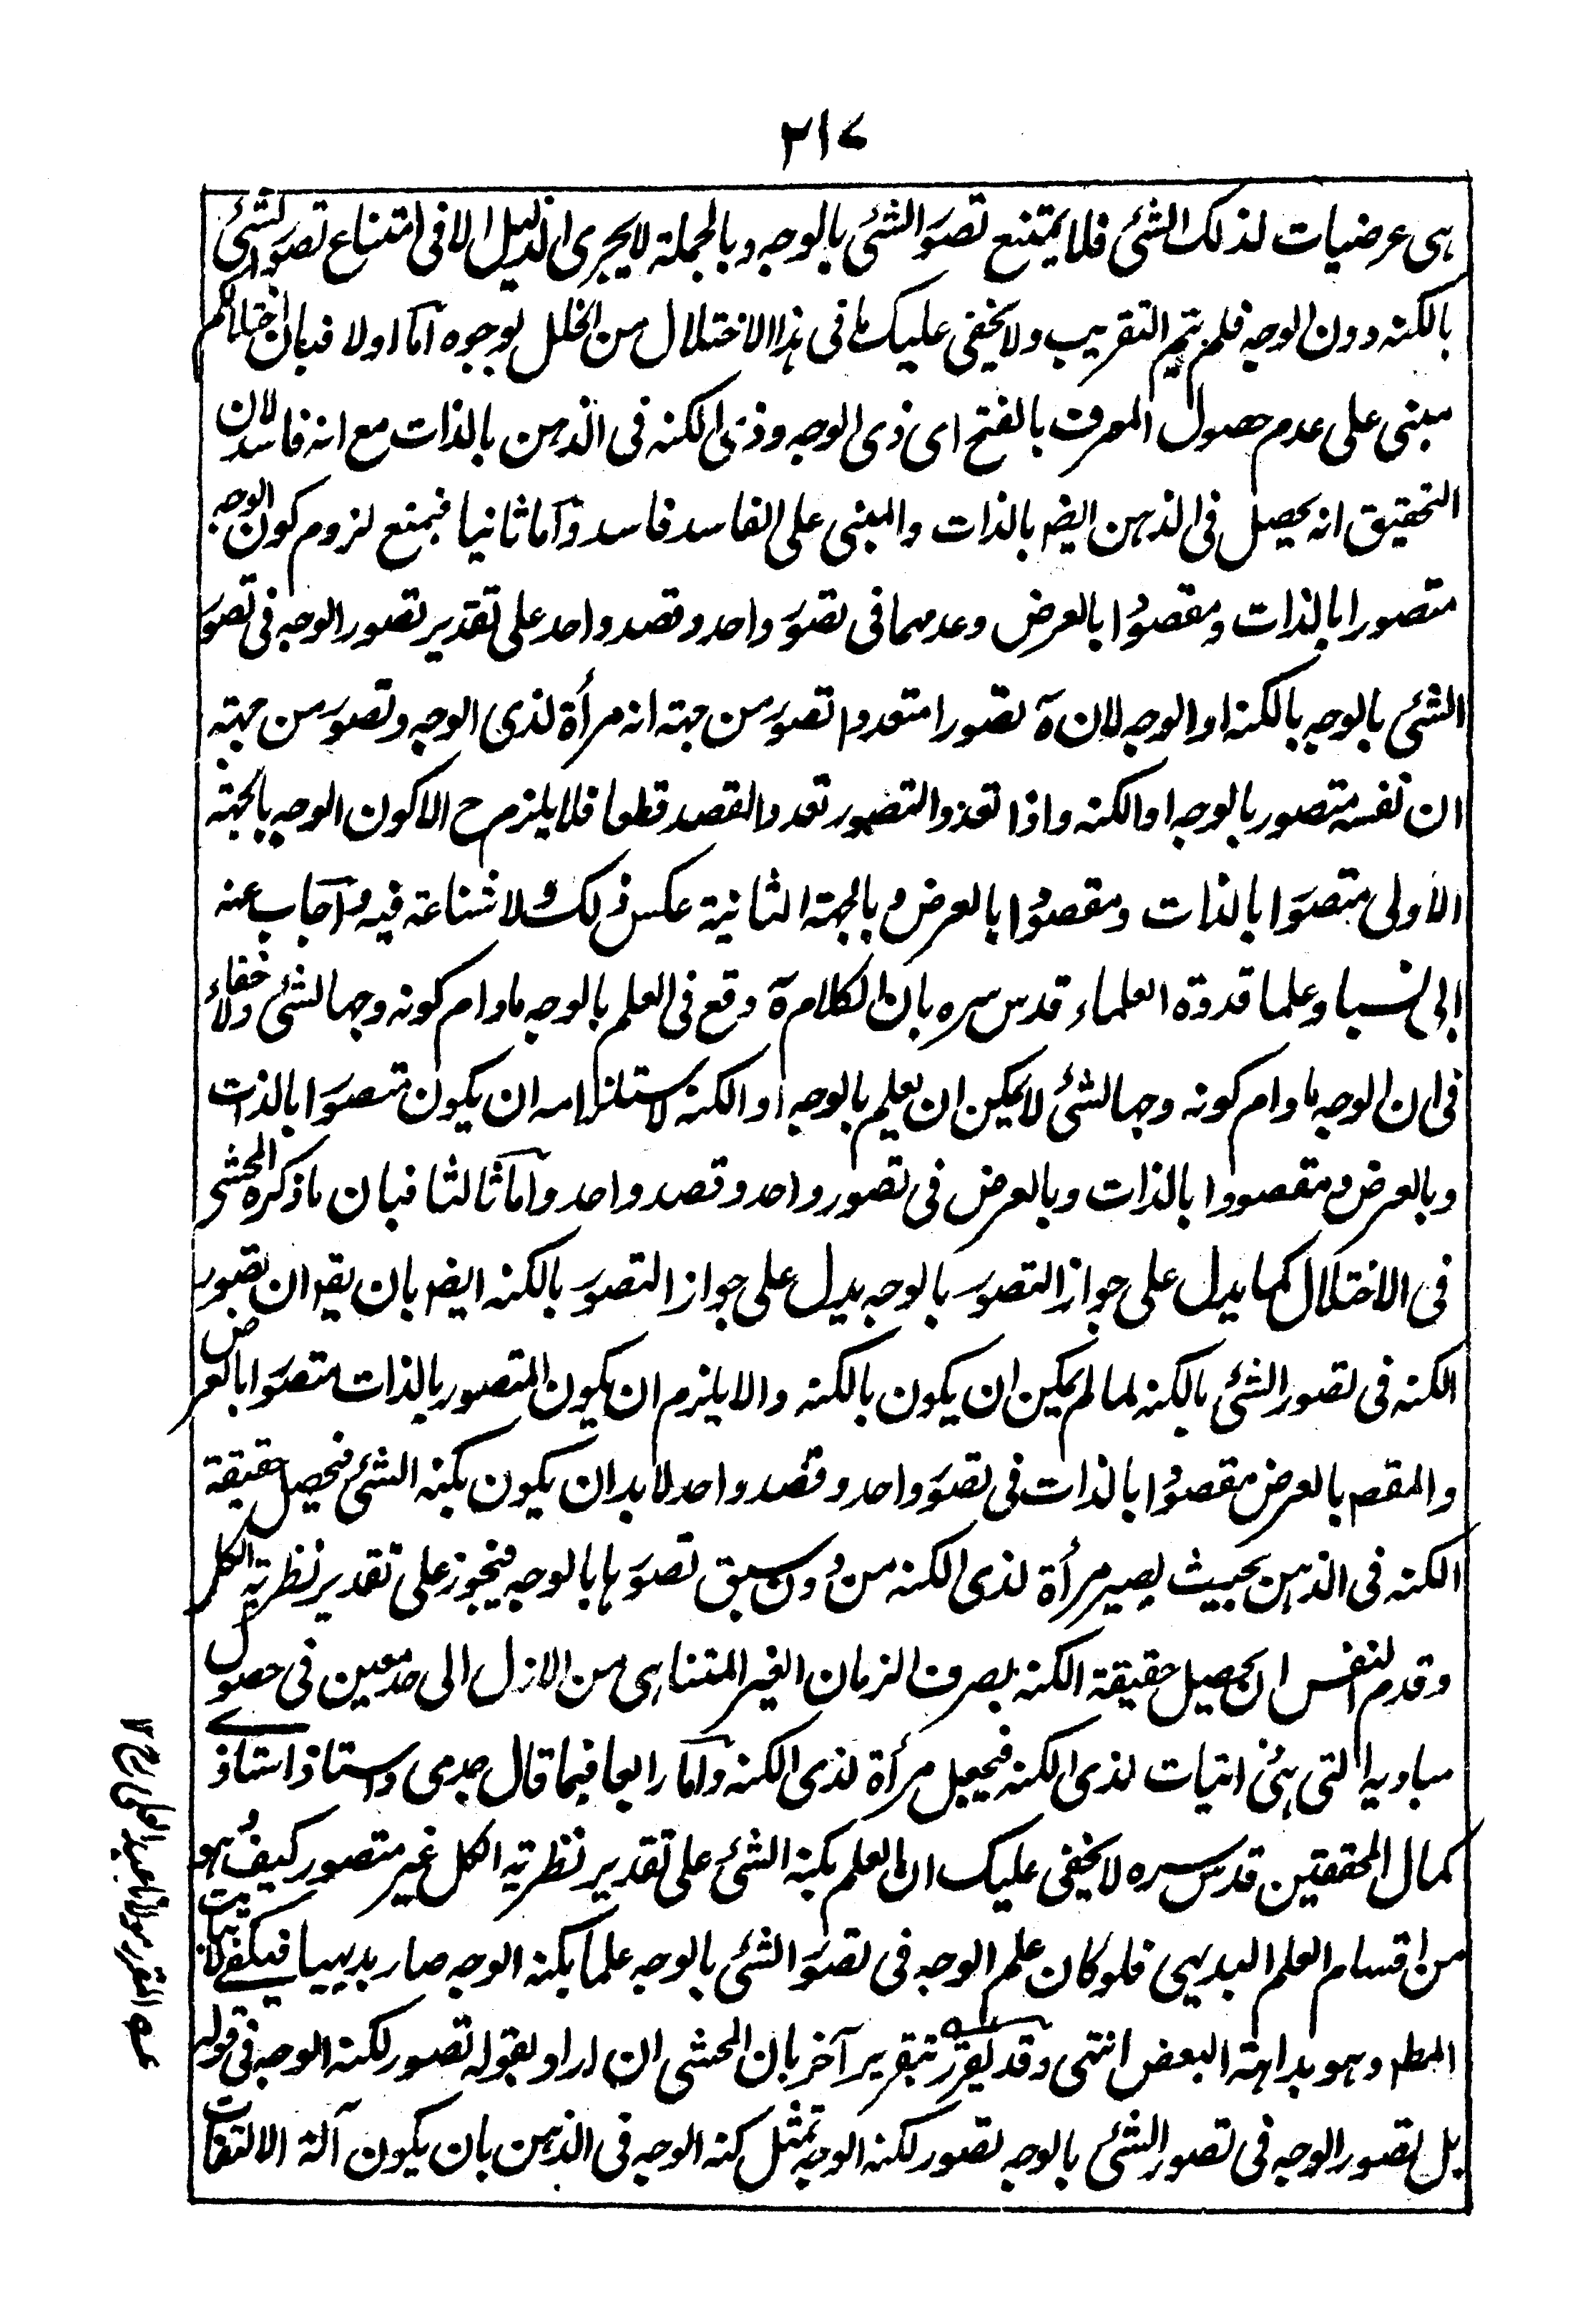 ٢١٧
هى عرضيات لذلك الشئ فلا يمتنع تصور الشئ بالوجه وبالجملة لا يجرى الدليل الا فى امتناع تصور الشئ
بالكنه دون الوجه فلم يتم التقريب ولا يخفى عليك ما فى هذا الاختلال من الخلل بوجوه اما اولا فبان اختلالكم
مبنى على عدم حصول المعرف بالفتح اى ذى الوجه وذى الكنه فى الذهن بالذات مع انه فاسد لان
التحقيق انه يحصل فى الذهن ايضا بالذات والمبنى على الفاسد فاسد واما ثانيا فبمنع لزوم كون الوجه
متصورا بالذات ومقصودا بالعرض وعدمهما فى تصور واحد وقصد واحد على تقدير تصور الوجه فى تصور
الشئ بالوجه بالكنه او الوجه لان ة تصورا متعددا تصور من جهته انه مرأة لذى الوجه وتصور من جهته
ان نفسه متصور بالوجه او الكنه واذا تعدد التصور تعدد القصد قطعا فلا يلزم ح الا كون الوجه بالجهته
الاولى متصورا بالذات ومقصودا بالعرض وبالجهته الثانية عكس ذلك ولا شناعة فيه واجاب عنه
ابى نسبا وعلما قدوة العلماء قدس سره بان الكلام ة وقع فى العلم بالوجه مادام كونه وجها لشئ ولا خفاء
فى ان الوجه مادام كونه وجها لشئ لا يمكن ان يعلم بالوجه او الكنه لاستلزامه ان يكون متصورا بالذات
وبالعرض ومقصودا بالذات وبالعرض فى تصور واحد وقصد واحد واما ثالثا فبان ما ذكره المحشى
فى الاختلال كما يدل على جواز التصور بالوجه يدل على جواز التصور بالكنه ايضا بان يقه ان تصور
الكنه فى تصور الشئ بالكنه لما لم يمكن ان يكون بالكنه والا يلزم ان يكون المتصور بالذات متصورا بالعرض
والمقصه بالعرض مقصودا بالذات فى تصور واحد وقصد واحد لا بد ان يكون بكنه الشئ فيحصل حقيقة
الكنه فى الذهن بحيث يصير مرأة لذى الكنه من دون سبق تصورها بالوجه فيجوز على تقدير نظرية الكل
وقدم النفس ان يحصل حقيقة الكنه بصرف الزمان الغير المتناهى من الازل الى حد معين فى حصول
مباديه التى هى ذاتيات لذى الكنه فيجعل مرأة لذى الكنه واما رابعا فبما قال جدى واستاذ استاذى
كمال المحققين قدس سره لا يخفى عليك ان العلم بكنه الشئ على تقدير نظرية الكل غير متصور كيف وهو
من اقسام العلم البديهى فلو كان علم الوجه فى تصور الشئ بالوجه علما بكنه الوجه صار بديهيا فيكفى لاثبات
المطه وهو بداهة البعض انتهى وقد يقرر بتقرير آخر بان المحشى ان اراد بقوله تصور لكنه الوجه فى قوله
بل تصور الوجه فى تصور الشئ بالوجه تصور لكنه الوجه تمثل كنه الوجه فى الذهن بان يكون آلة الالتفات